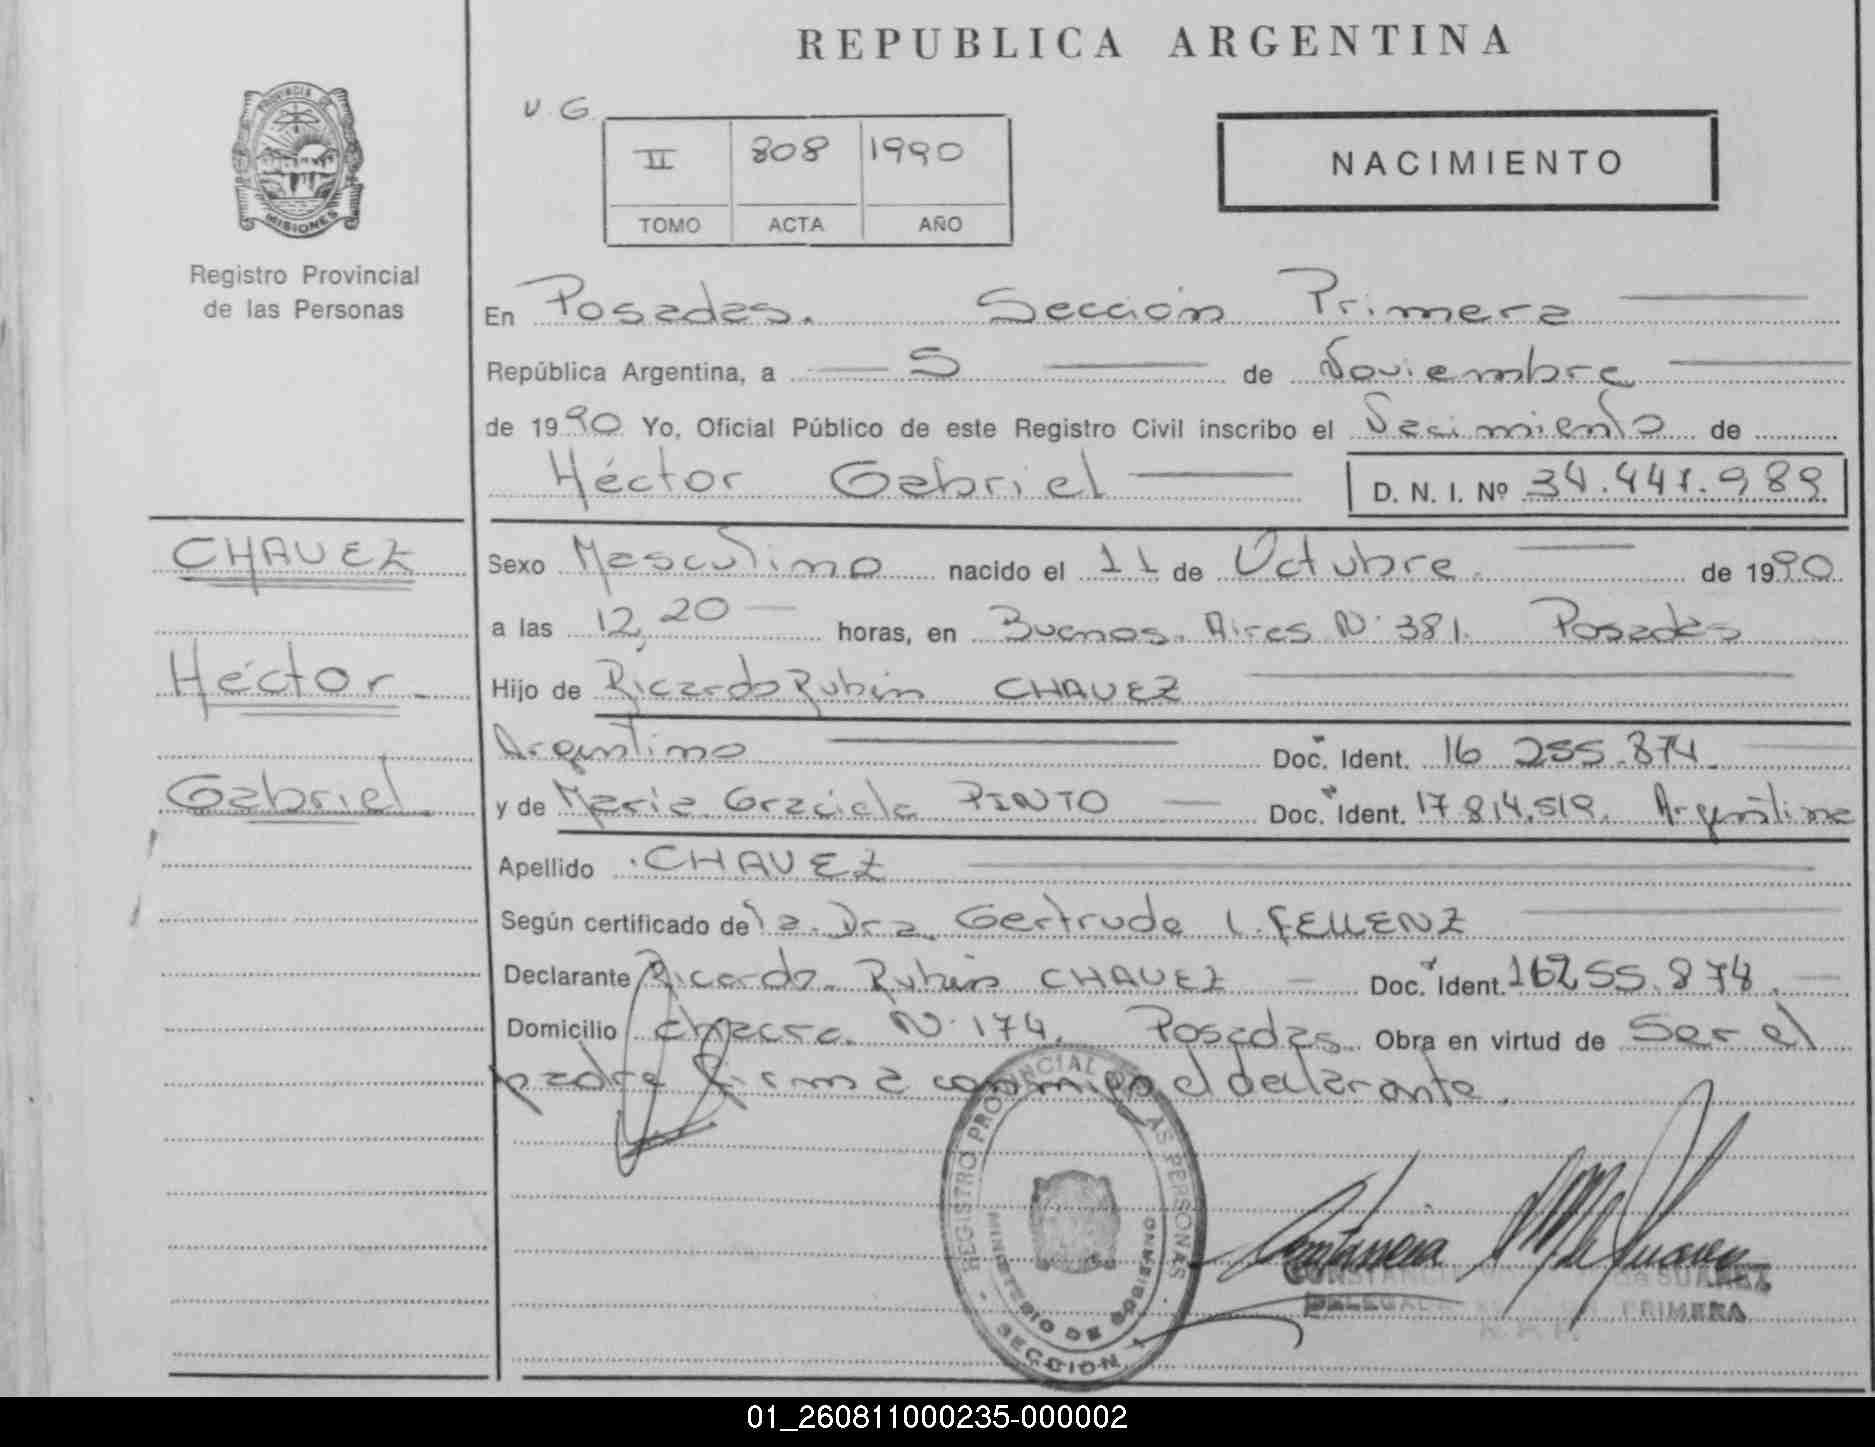 REPUBLICA ARGENTINA
PROVINCIA DE
MISIONES
Registro Provincial
de las Personas
V. G.
II 808 1990
TOMO ACTA AÑO
NACIMIENTO
En Posadas. Sección Primera
República Argentina, a 5 de Noviembre
de 1990 Yo, Oficial Público de este Registro Civil inscribo el Nacimiento de
Héctor Gabriel D. N. I. Nº 34.441.989
CHAVEZ
Héctor
Gabriel
Sexo Masculino nacido el 11 de Octubre de 1990
a las 12,20 horas, en Buenos Aires Nº 381. Posadas
Hijo de Ricardo Rubén CHAVEZ
Argentino Doc. Ident. 16 255.874
y de María Graciela PINTO Doc. Ident. 17.814.519. Argentina
Apellido CHAVEZ
Según certificado de la Dra. Gertrude L. FELLENZ
Declarante Ricardo Rubén CHAVEZ Doc. Ident. 16255.874
Domicilio chacra Nº 174, Posadas Obra en virtud de Ser el
padre firma conmigo el declarante.
REGISTRO PROVINCIAL DE LAS PERSONAS
MINISTERIO DE GOBIERNO
SECCION 1
de SUAREZ
PRIMERA
01_260811000235-000002